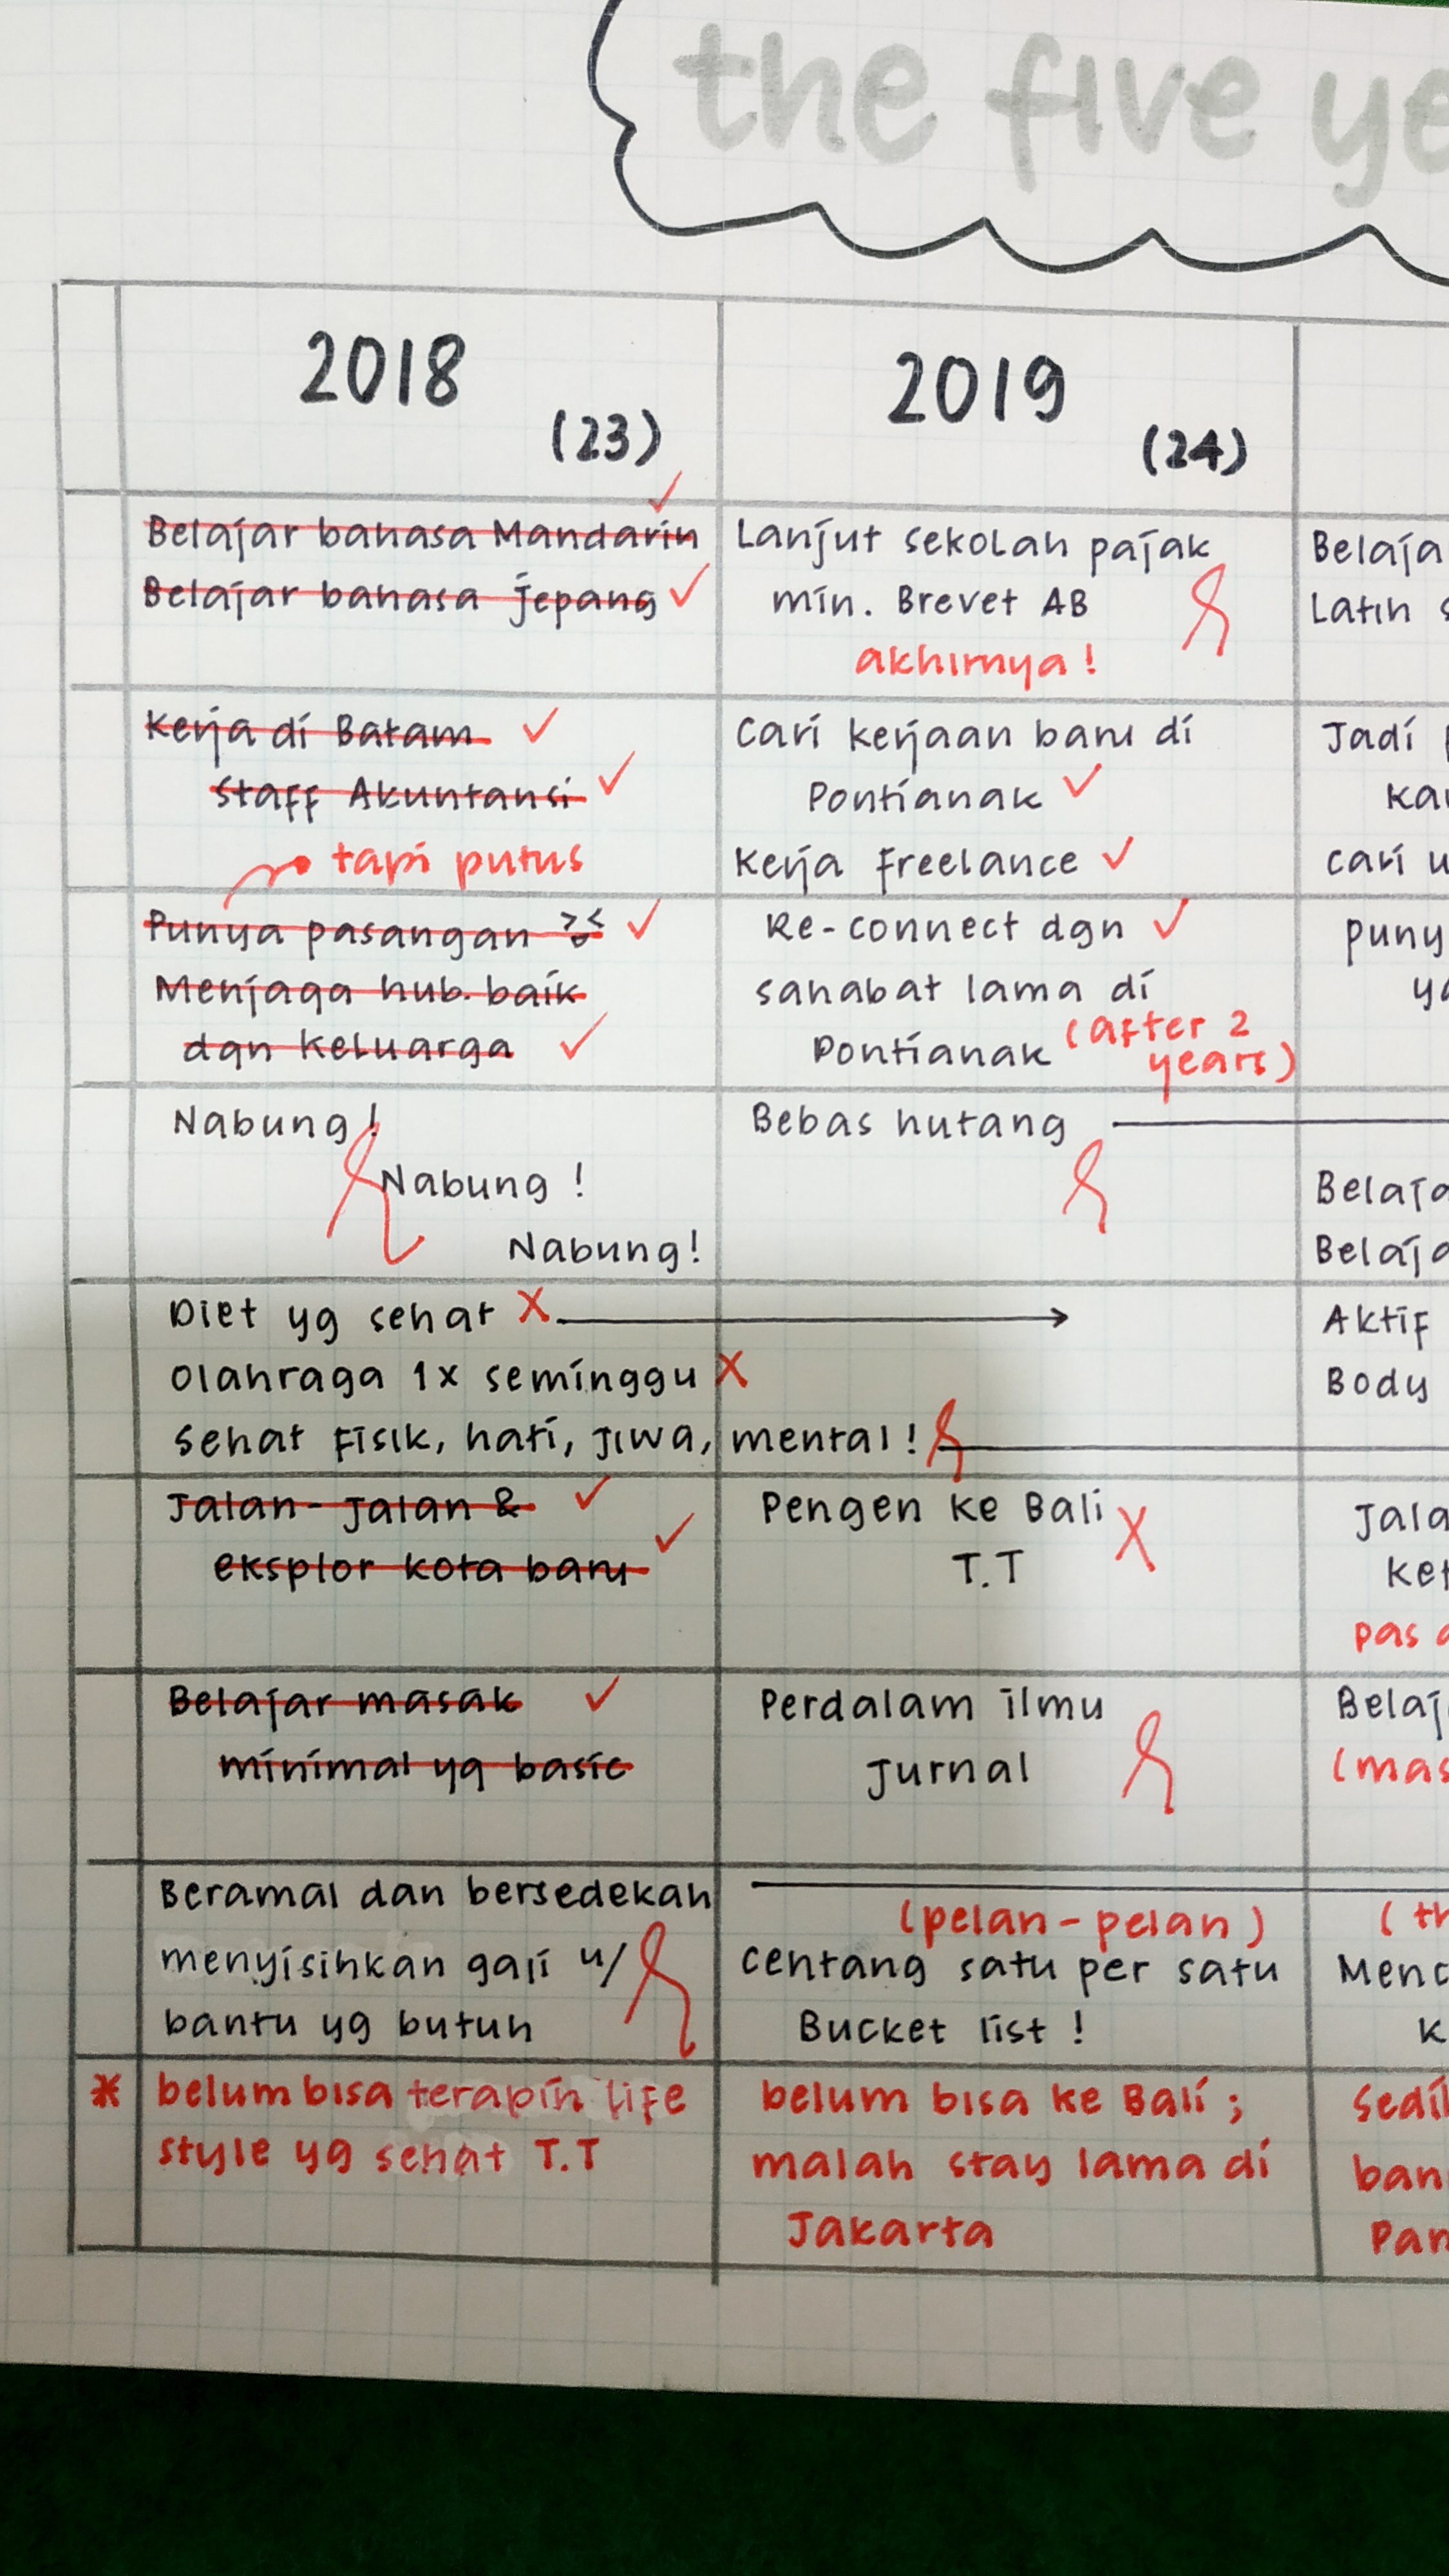 the five ye
2018
(23)
2019
(24)
Belajar bahasa Mandarin
Belajar bahasa jepang
Lanjut sekolah pajak
min. Brevet AB
akhirnya!
Belaja
Latin s
Kerja di Batam
Staff Akuntansi
Cari kerjaan baru di
Pontianak
Kerja Freelance
Jadi
Kau
Cari u
tapi putus
Punya pasangan
Menjaga hub. baik
dgn keluarga
Re-connect dgn
sahabat lama di
Pontianak (after 2
years)
puny
ya
Nabung!
Nabung!
Nabung!
Bebas hutang
Belaja
Belaja
Diet yg sehat X
Olahraga 1x seminggu X
Sehat Fisik, hati, jiwa, mental!
Aktif
Body
Jalan-jalan &
eksplor kota baru
Pengen ke Bali X
T.T
Jala
ket
pas
Belajar masak
minimal yg basic
Perdalam ilmu
jurnal
Belaj
(mas
Beramal dan bersedekah
menyisihkan gaji u/
bantu yg butuh
(pelan-pelan)
centang satu per satu
Bucket list!
(th
Menc
K
* belum bisa terapin life
style yg sehat T.T
belum bisa ke Bali;
malah stay lama di
Jakarta
Sedi
ban
Pan